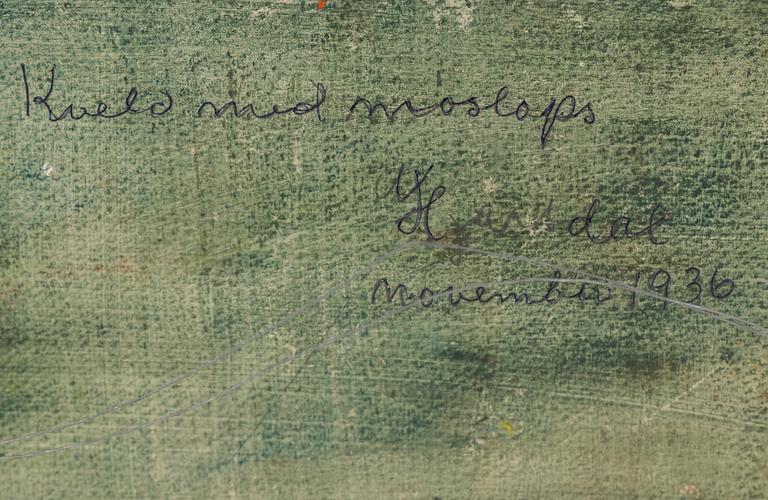 Kveld med mioslops
dal
november 1936